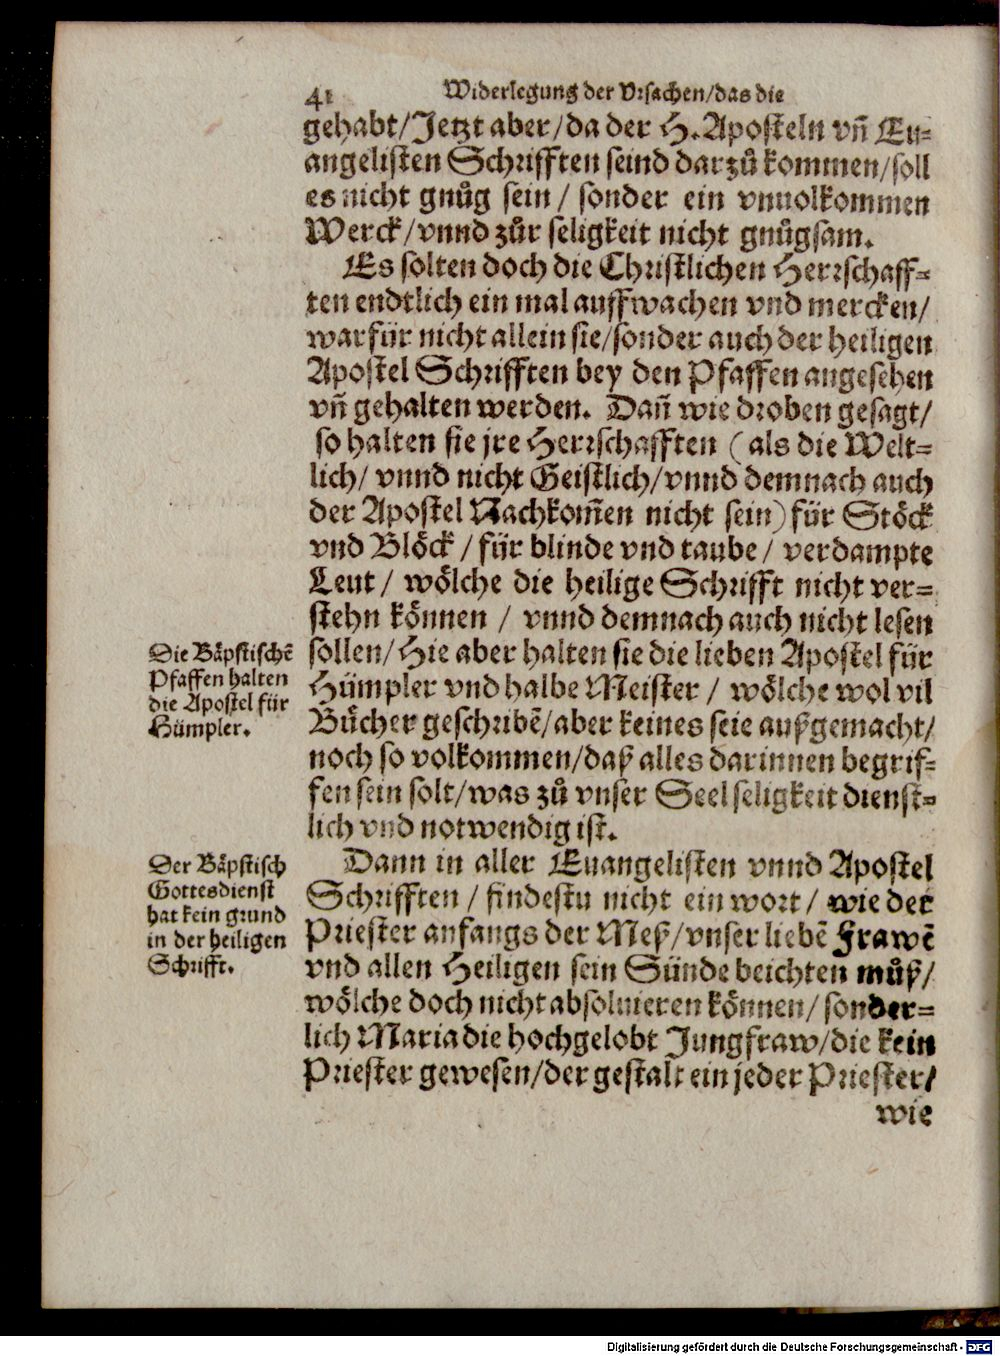 41 Widerlegung der Vrsachen/das die
gehabt/Jetzt aber/da der H. Aposteln vñ Eu-
angelisten Schrifften seind darzů kommen/soll
es nicht gnůg sein/ sonder ein vnuolkommen
Werck/vnnd zůr seligkeit nicht gnůgsam.
Es solten doch die Christlichen Herrschaff-
ten endtlich ein mal auffwachen vnd mercken/
warfür nicht allein sie/sonder auch der heiligen
Apostel Schrifften bey den Pfaffen angesehen
vñ gehalten werden. Dañ wie droben gesagt/
so halten sie jre Herrschafften (als die Welt-
lich/ vnnd nicht Geistlich/vnnd demnach auch
der Apostel Nachkom̃en nicht sein) für Stöck
vnd Blöck/für blinde vnd taube/ verdampte
Leut/ wölche die heilige Schrifft nicht ver-
stehn können/ vnnd demnach auch nicht lesen
sollen/Hie aber halten sie die lieben Apostel für
Hümpler vnd halbe Meister/ wölche wol vil
Bücher geschribẽ/aber keines seie außgemacht/
noch so volkommen/daß alles darinnen begrif-
fen sein solt/was zů vnser Seel seligkeit dienst-
lich vnd notwendig ist.
Die Bäpstischẽ
Pfaffen halten
die Apostel für
Hümpler.
Dann in aller Euangelisten vnnd Apostel
Schrifften/ findestu nicht ein wort/ wie der
Priester anfangs der Meß/vnser liebẽ Frawẽ
vnd allen Heiligen sein Sünde beichten můß/
wölche doch nicht absoluieren können/ sonder-
lich Maria die hochgelobt Jungfraw/die kein
Priester gewesen/der gestalt ein jeder Priester/
Der Bäpstisch
Gottesdienst
hat kein grund
in der heiligen
Schrifft.
wie
Digitalisierung gefördert durch die Deutsche Forschungsgemeinschaft - DFG